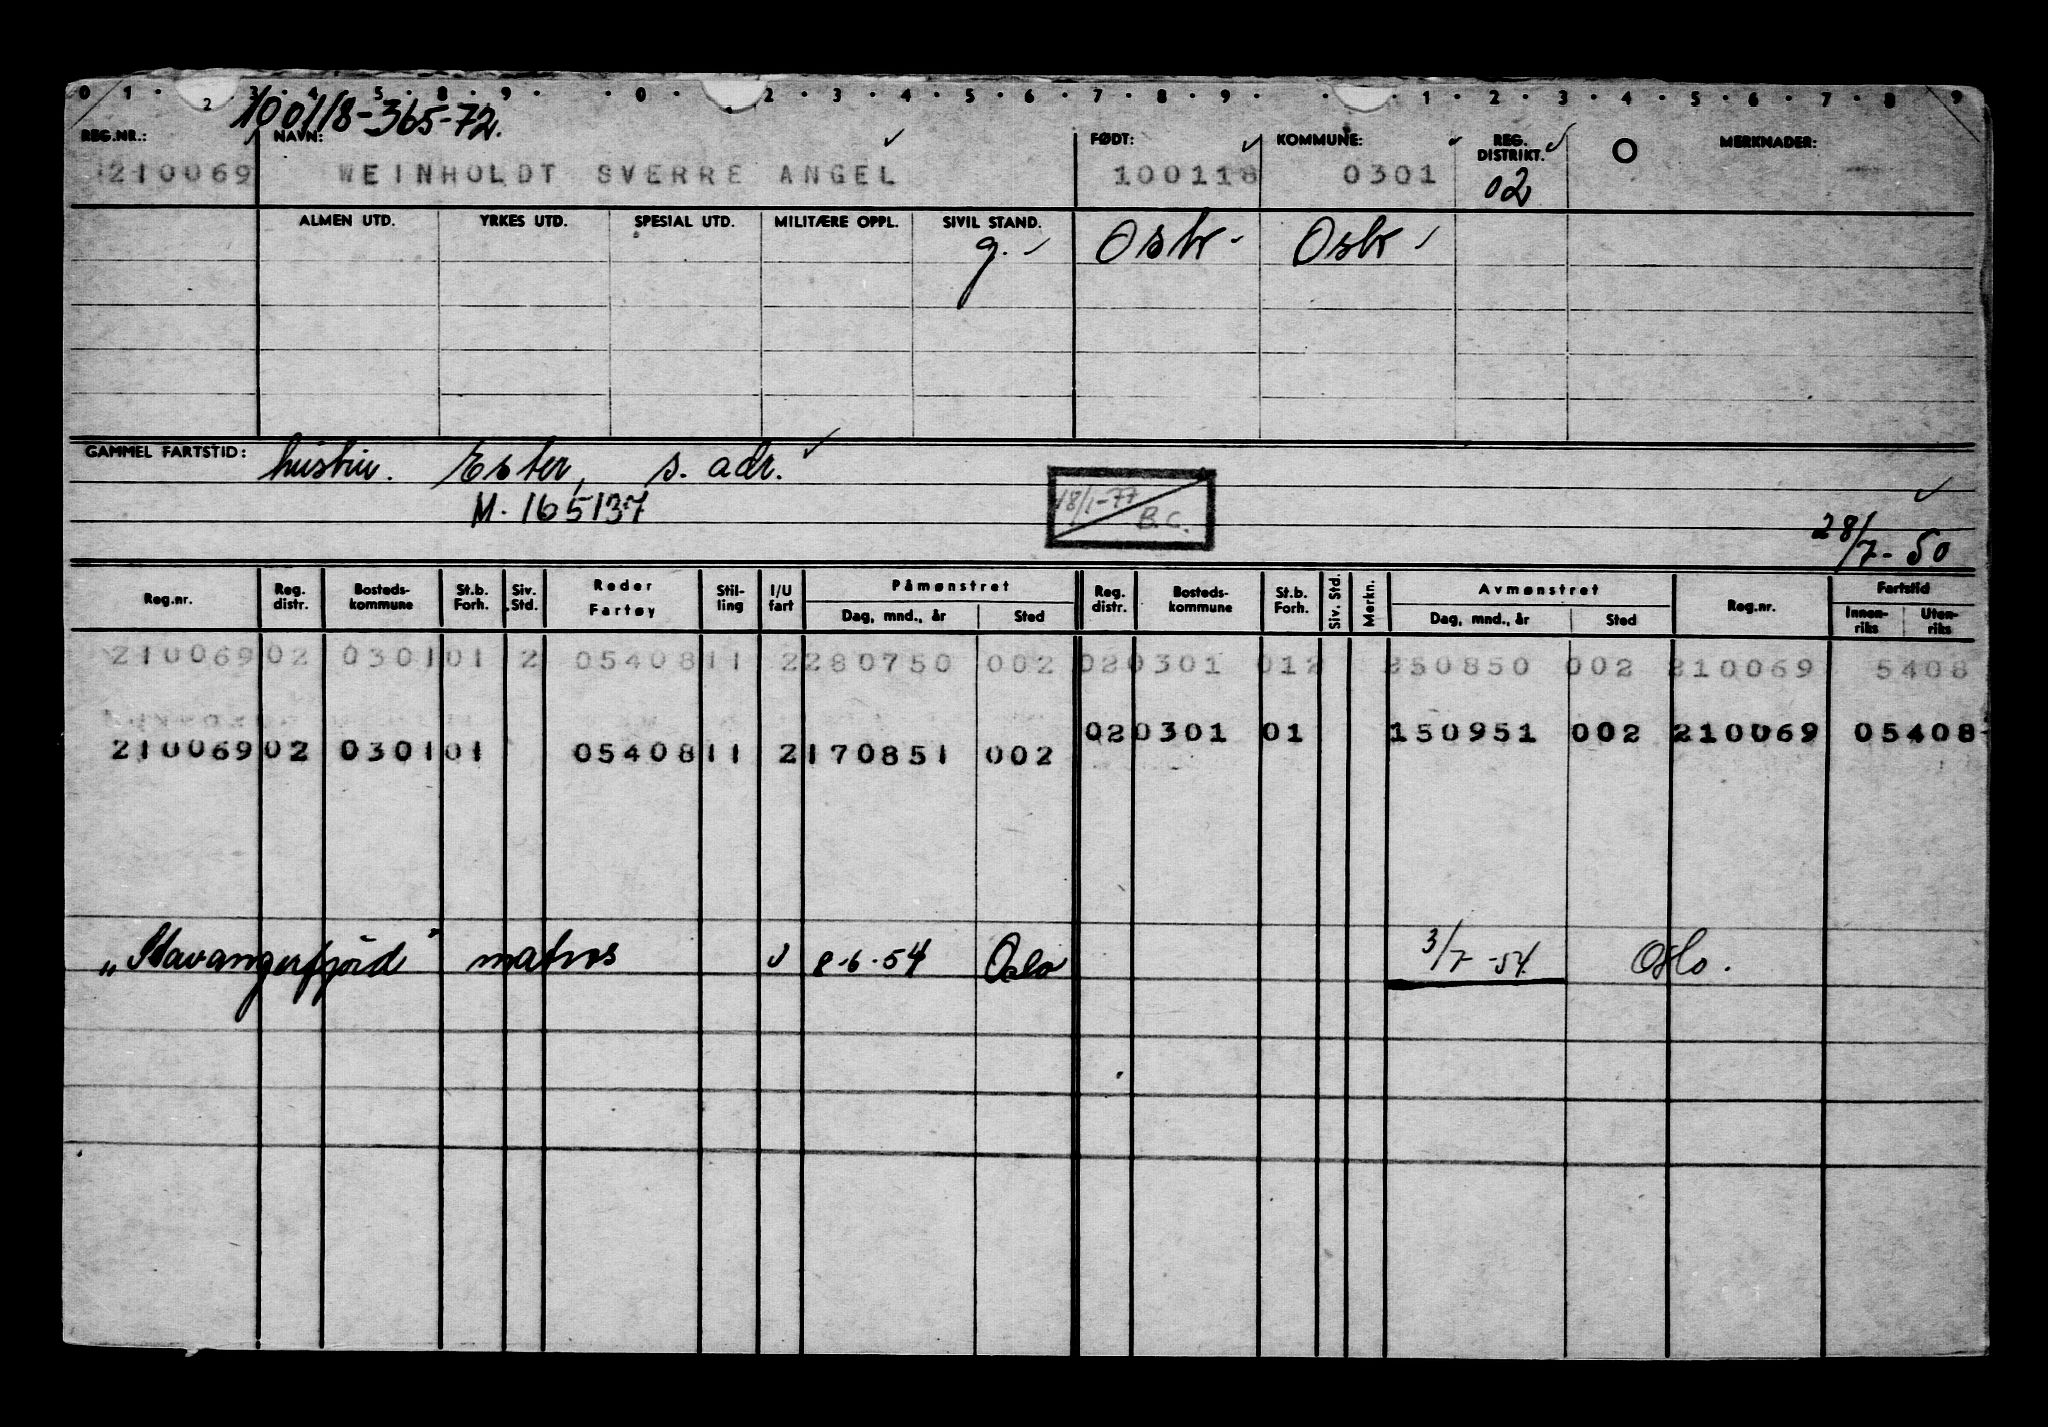 0 1 2 3 4 5 8 9 0 2 3 4 5 6 7 8 9 1 2 3 4 5 6 7 8 9
100118-365-72.
REG.NR.: NAVN: FØDT: KOMMUNE: REG. DISTRIKT. O MERKNADER:
210069 WEINHOLDT SVERRE ANGEL 100118 0301 02
ALMEN UTD. YRKES UTD. SPESIAL UTD. MILITÆRE OPPL. SIVIL STAND.
g. Oslo Oslo
GAMMEL FARTSTID: hustru. Ester, s. adr.
M. 165137
18/1-77 B.C.
28/7-50
Reg.nr. Reg. distr. Bosteds-kommune St.b. Forh. Siv. Std. Reder Fartøy Stil-ling I/U fart Påmønstret Reg. distr. Bosteds-kommune St.b. Forh. Siv. Std. Merkn. Avmønstret Reg.nr. Fartstid
Dag, mnd., år Sted Dag, mnd., år Sted Innen-riks Uten-riks
210069 02 0301 01 2 05408 11 2 280750 002 02 0301 01 2 250850 002 210069 5408
02 0301 01 150951 002 210069 05408
210069 02 0301 01 05408 11 2 170851 002
"Stavangerfjord" matros U 8-6-54 Oslo 3/7-54 Oslo.